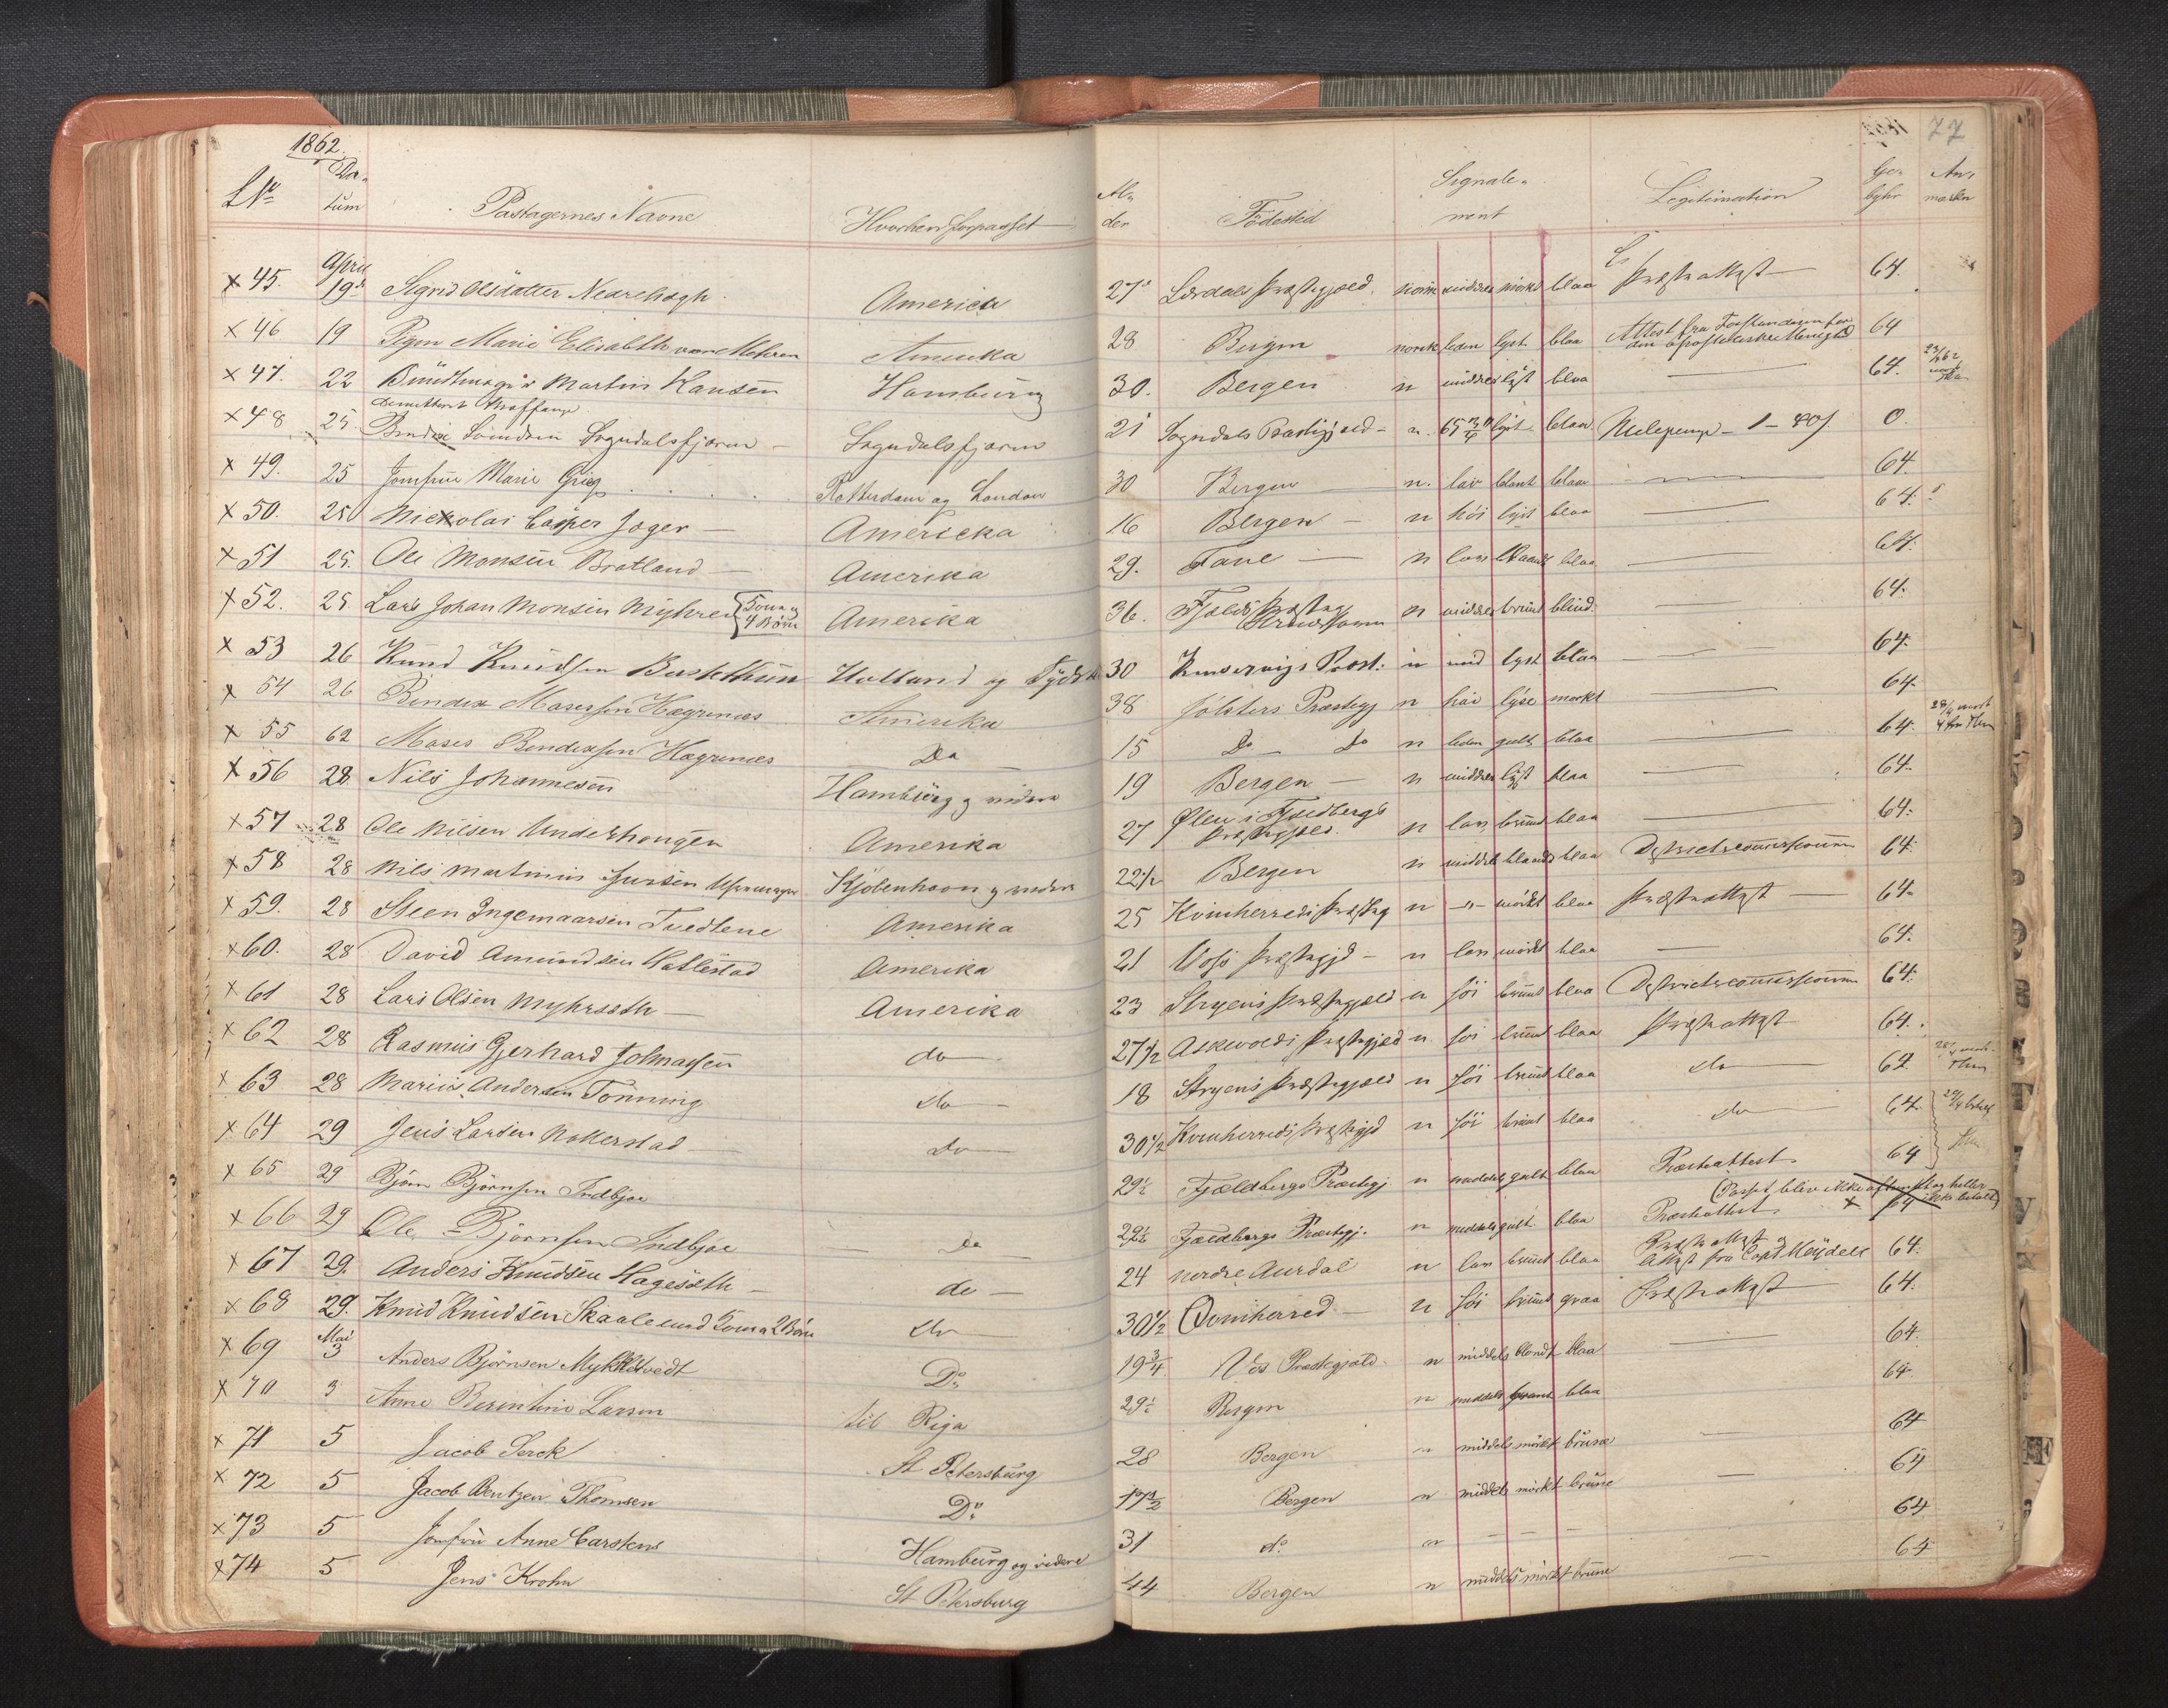 1862. 77
L No Da- tum Passagernes Navne Hvorhen forpasset Al- der Födested Signale- ment Legitimation Ge- byhr An- mærkn
x 45. April 19de Sigrid Olsdatter America 27 Lærdals Præstegjeld norsk middels mörkt blaa Præsteattest 64.
x 46 19 Pigen Marie Elisabeth von Mehren Amerika 28 Bergen norsk liden lyst blaa Attest fra Forstanderen for den apostoliske Menighed 64
x 47. 22 Bundtmager Martin Hansen Hamburg 30. Bergen n middels lyst blaa — 64.
x 48 25 Bendix Soindsen Sogndalsfjæren Sogndalsfjæren 21 Sogndals Præstegjeld n. lyst blaa 0.
x 49. 25 Jomfrue Marie Grieg Rotterdam og London 30 Bergen n. lav blaa — 64.
x 50. 25 Nickolai Casper Jæger — Americka 16 Bergen — n höi lyst blaa — 64.
x 51 25. Ole Monsen Bratland — Amerika 29. Fane — n lav blaa — 64.
x 52. 25 Lars Johan Monsen Myhren {Kone og 4 Börn Amerika 36. n middels brunt blind — 64.
x 53 26 Knud Knudsen Buskethun Holland og Tydsk. 30 Præst. n mid lyst blaa — 64.
x 54 26 Bendix Mosessen Hægrenæs Amerika 38 Jölsters Præstegj n höi lyse morkt — 64.
x 55 62 Moses Bendixsen Hægrenæs Do — 15 Do — Do n liden gult blaa — 64.
x 56 28. Nils Johannesen Hamburg og videre 19 Bergen — n middels lyst blaa — 64.
x 57 28 Ole Nilsen Underhougen Amerika 27 Ølen i Fjeldbergs Præstegjeld. n lav brunt blaa — 64.
x 58 28 Nils Martinus Iversen Kjøbenhavn og videre 22½ Bergen n middels blondt blaa 64.
x 59. 28 Steen Ingemaarsen Tvedtene Amerika 25 Kvinherreds Præsteg n —„— mörkt blaa Præsteattest — 64.
x 60. 28 David Amundsen Hatlestad Amerika 21 Voss Præstegjd — n lav mörkt blaa — 64.
x 61 28 Lars Olsen Myhrseth — Amerika 23 Stryens Præstegjeld n höi brunt blaa 64.
x 62 28 Rasmus Gjerhard Johnassen do — 27½ Askevolds Præstegjeld n höi brunt blaa Præsteattest 64.
x 63 28 Marius Andersen Tonning do — 18 Stryens Præstegjeld n höi brunt blaa do — 62
x 64 29 Jens Larsen Nokerstad — do — 30½ Kvinherreds Præstegjd n höi brunt blaa do — 64.
x 65 29 Björn Björnsen Indbjoe 29½ Fjældbergs Præstegj n middels gult blaa Præsteattest. 64
(Passet blev ikke afhentet og heller ikke betalt)
x 66 29 Ole Björnsen Indbjoe — Do — 22½ Fjældbergs Præstegj. n middels gult blaa Præsteattest. x 64
x 67 29. Anders Knudsen Hageseth — do — 24 Nordre Aurdal n lav brunt blaa Præsteattest og Attest fra Capt Meydell 64.
x 68 29. Knud Knudsen Skaale med Kone og 2 Börn do — 30½ Qvinherred — n höi brunt graa Præsteattest — 64.
x 69 Mai 3 Anders Björnsen Mykkeltvedt Do 19¾ Vos Præstegjæld. n middels blondt blaa — 64.
x 70 3 Anne Berentine Larsen til Riga 29½ Bergen n middels brunt blaa 64.
x 71 5 Jacob Serck St Petersburg 28 Bergen n middels mörkt brune — 64
x 72 5 Jacob Bentzen Thomsen Do 17½ Bergen n middels mörkt brune — 64
x 73 5 Jomfru Anne Carstens Hamburg og videre 31 do n — — — 64
x 74 5 Jens Krohn St Petersburg 44 Bergen n middels mörkt brune — 64